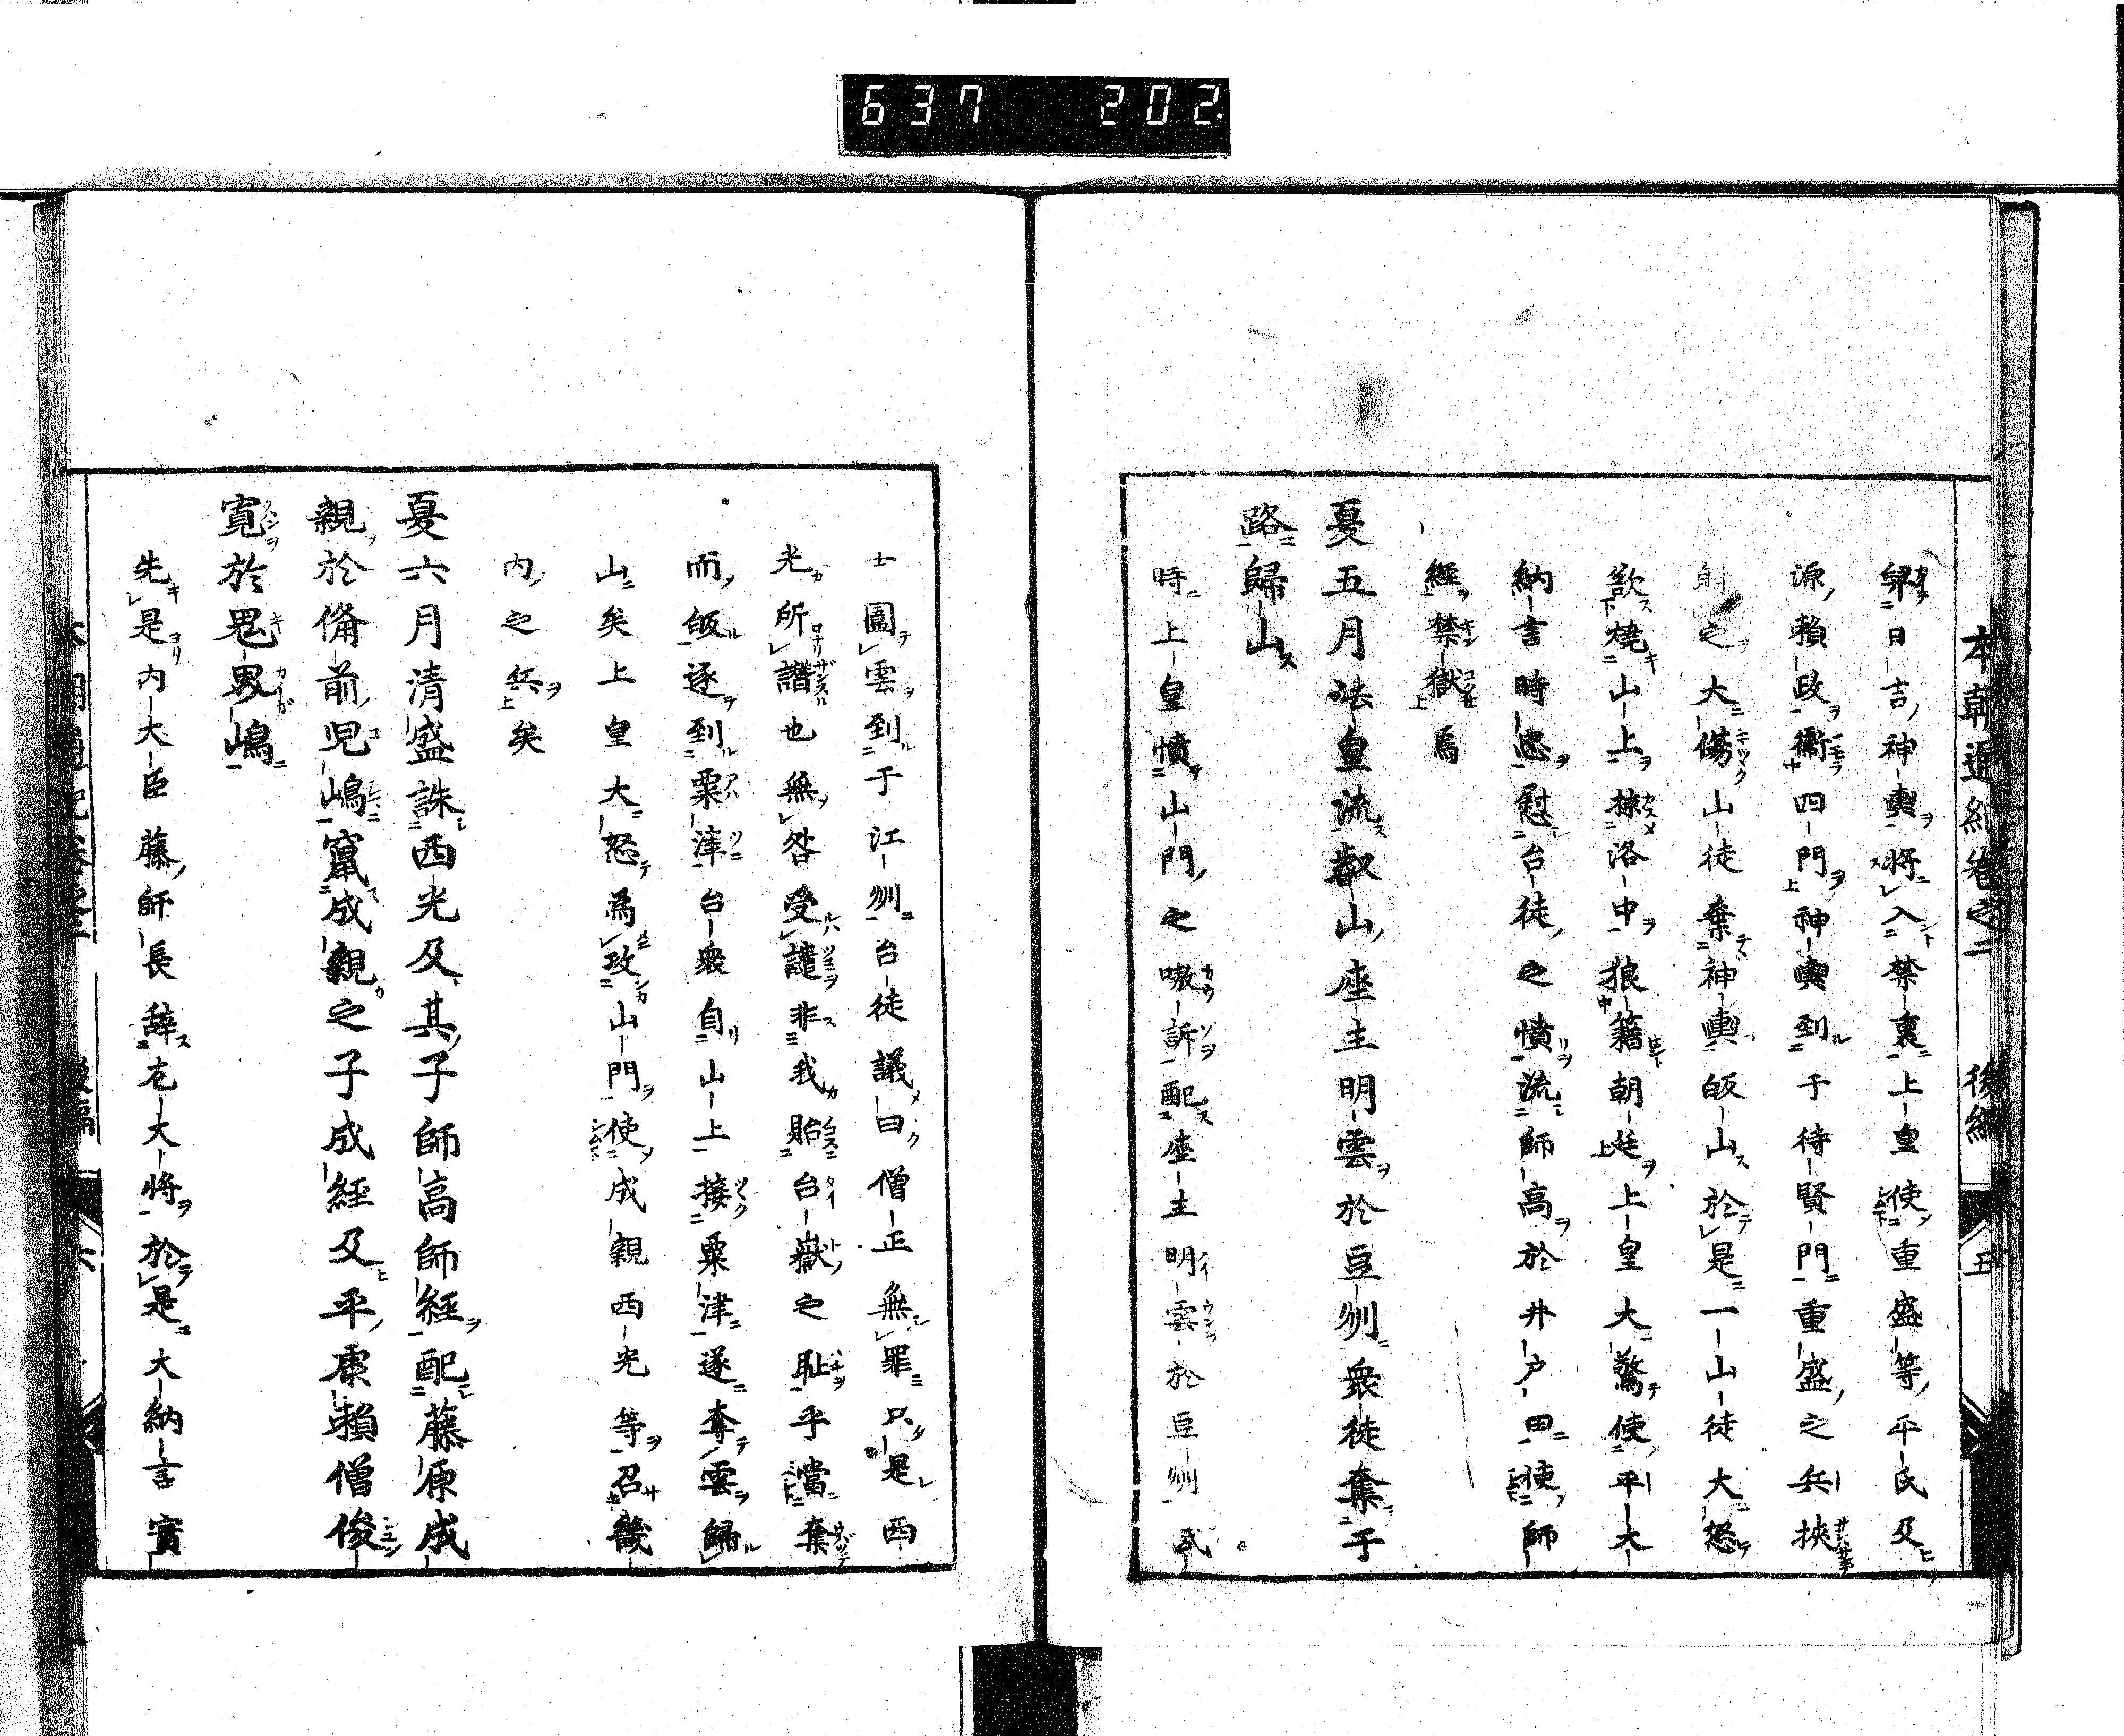 637 202.
本朝通紀卷之二 後編 五
舁日吉神輿將入禁裏上皇使重盛等平氏及
源賴政衞四門神輿到于待賢門重盛之兵挾
射之大傷山徒奪神輿皈山於是一山徒大怒
欲燒山上掠洛中狼籍朝廷上皇大驚使平大
納言時忠慰台徒之憤流師高於井戸田使師
經禁獄焉
夏五月法皇流叡山座主明雲於豆州衆徒奪于
路歸山
時上皇憤山門之嗷訴配座主明雲於豆州武
士圍雲到于江州台徒議曰僧正無罪只是西
光所譖也無咎受譴非我貽台嶽之耻乎當奪
而皈逐到粟津台衆自山上接粟津遂奪雲歸
山矣上皇大怒爲攻山門使成親西光等召畿
内之兵矣
夏六月清盛誅西光及其子師高師經配藤原成
親於備前児嶋竄成親之子成經及平康賴僧俊
寛於鬼界嶋
先是内大臣藤師長辞左大將於是大納言實